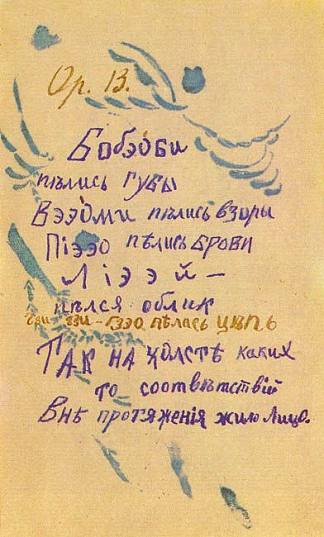 Ор. 13.
Бобэоби
пѣлись губы
Вээоми пѣлись взоры
Піээо пѣлись брови
Ліээй —
пѣлся облик
Гзи - гзи - гзэо пѣлась цѣпь
Так на холстѣ каких
то соотвѣтствій
Внѣ протяженія жило Лицо.